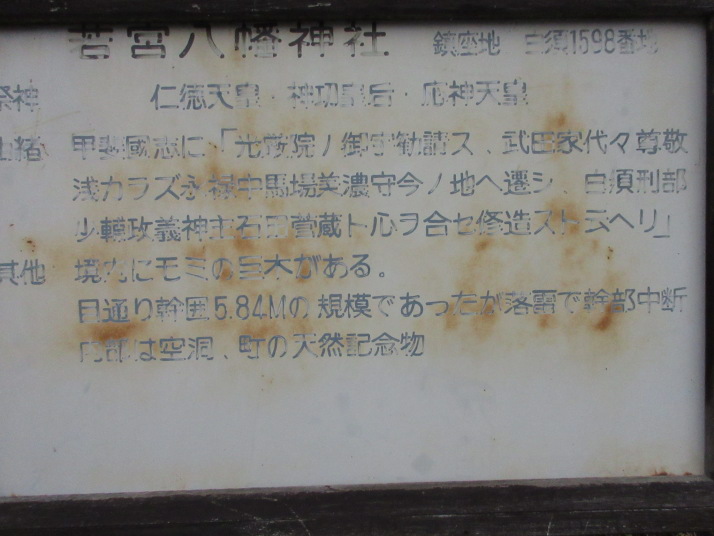 若宮八幡神社 鎮座地 白須1598番地
祭神 仁徳天皇・神功皇后・応神天皇
由緒 甲斐國志に「光厳院ノ御宇勧請ス、武田家代々尊敬
浅カラズ永禄中馬場美濃守今ノ地ヘ遷シ、白須刑部
少輔政義神主石田菅蔵ト心ヲ合セ修造スト云ヘリ」
其他 境内にモミの巨木がある。
目通り幹囲5.84Mの規模であったが落雷で幹部中断
内部は空洞、町の天然記念物